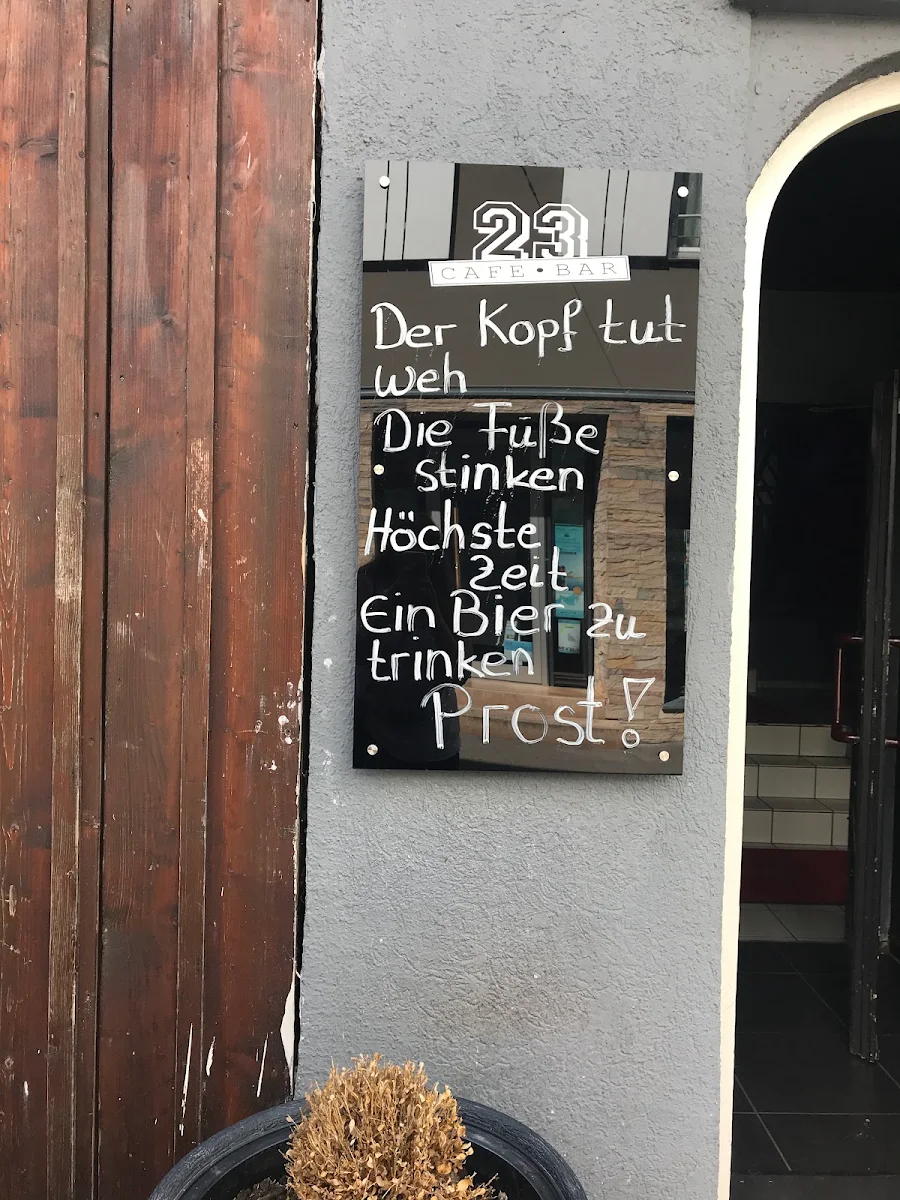 23
CAFE•BAR
Der Kopf tut
weh
Die Füße
stinken
Höchste
Zeit
Ein Bier zu
trinken
Prost!